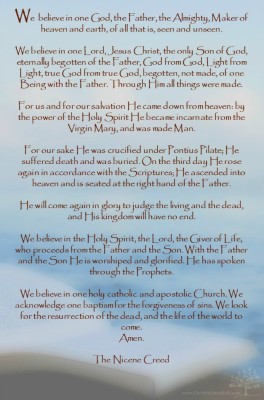 We believe in one God, the Father, the Almighty, Maker of
heaven and earth, of all that is, seen and unseen.
We believe in one Lord, Jesus Christ, the only Son of God,
eternally begotten of the Father, God from God, Light from
Light, true God from true God, begotten, not made, of one
Being with the Father. Through Him all things were made.
For us and for our salvation He came down from heaven: by
the power of the Holy Spirit He became incarnate from the
Virgin Mary, and was made Man.
For our sake He was crucified under Pontius Pilate; He
suffered death and was buried. On the third day He rose
again in accordance with the Scriptures; He ascended into
heaven and is seated at the right hand of the Father.
He will come again in glory to judge the living and the dead,
and His kingdom will have no end.
We believe in the Holy Spirit, the Lord, the Giver of Life,
who proceeds from the Father and the Son. With the Father
and the Son He is worshiped and glorified. He has spoken
through the Prophets.
We believe in one holy catholic and apostolic Church. We
acknowledge one baptism for the forgiveness of sins. We look
for the resurrection of the dead, and the life of the world to
come.
Amen.
The Nicene Creed